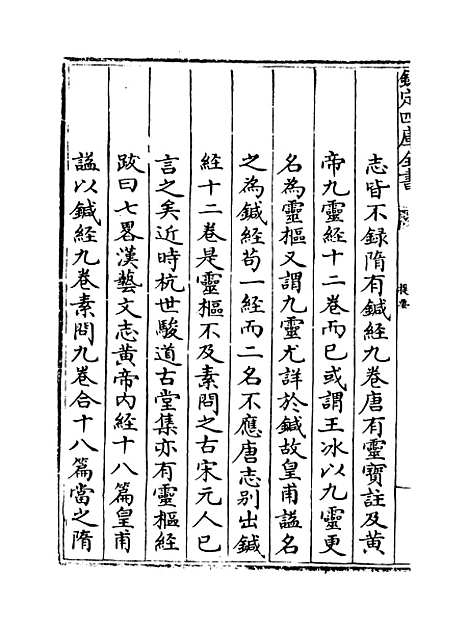 欽定四庫全書
提要
志皆不録隋有鍼經九卷唐有靈寶註及黄
帝九靈經十二卷而已或謂王冰以九靈更
名為靈樞又謂九靈尤詳於鍼故皇甫謐名
之為鍼經苟一經而二名不應唐志别出鍼
經十二卷是靈樞不及素問之古宋元人已
言之矣近時杭世駿道古堂集亦有靈樞經
跋曰七畧漢藝文志黄帝内經十八篇皇甫
謐以鍼經九卷素問九卷合十八篇當之隋